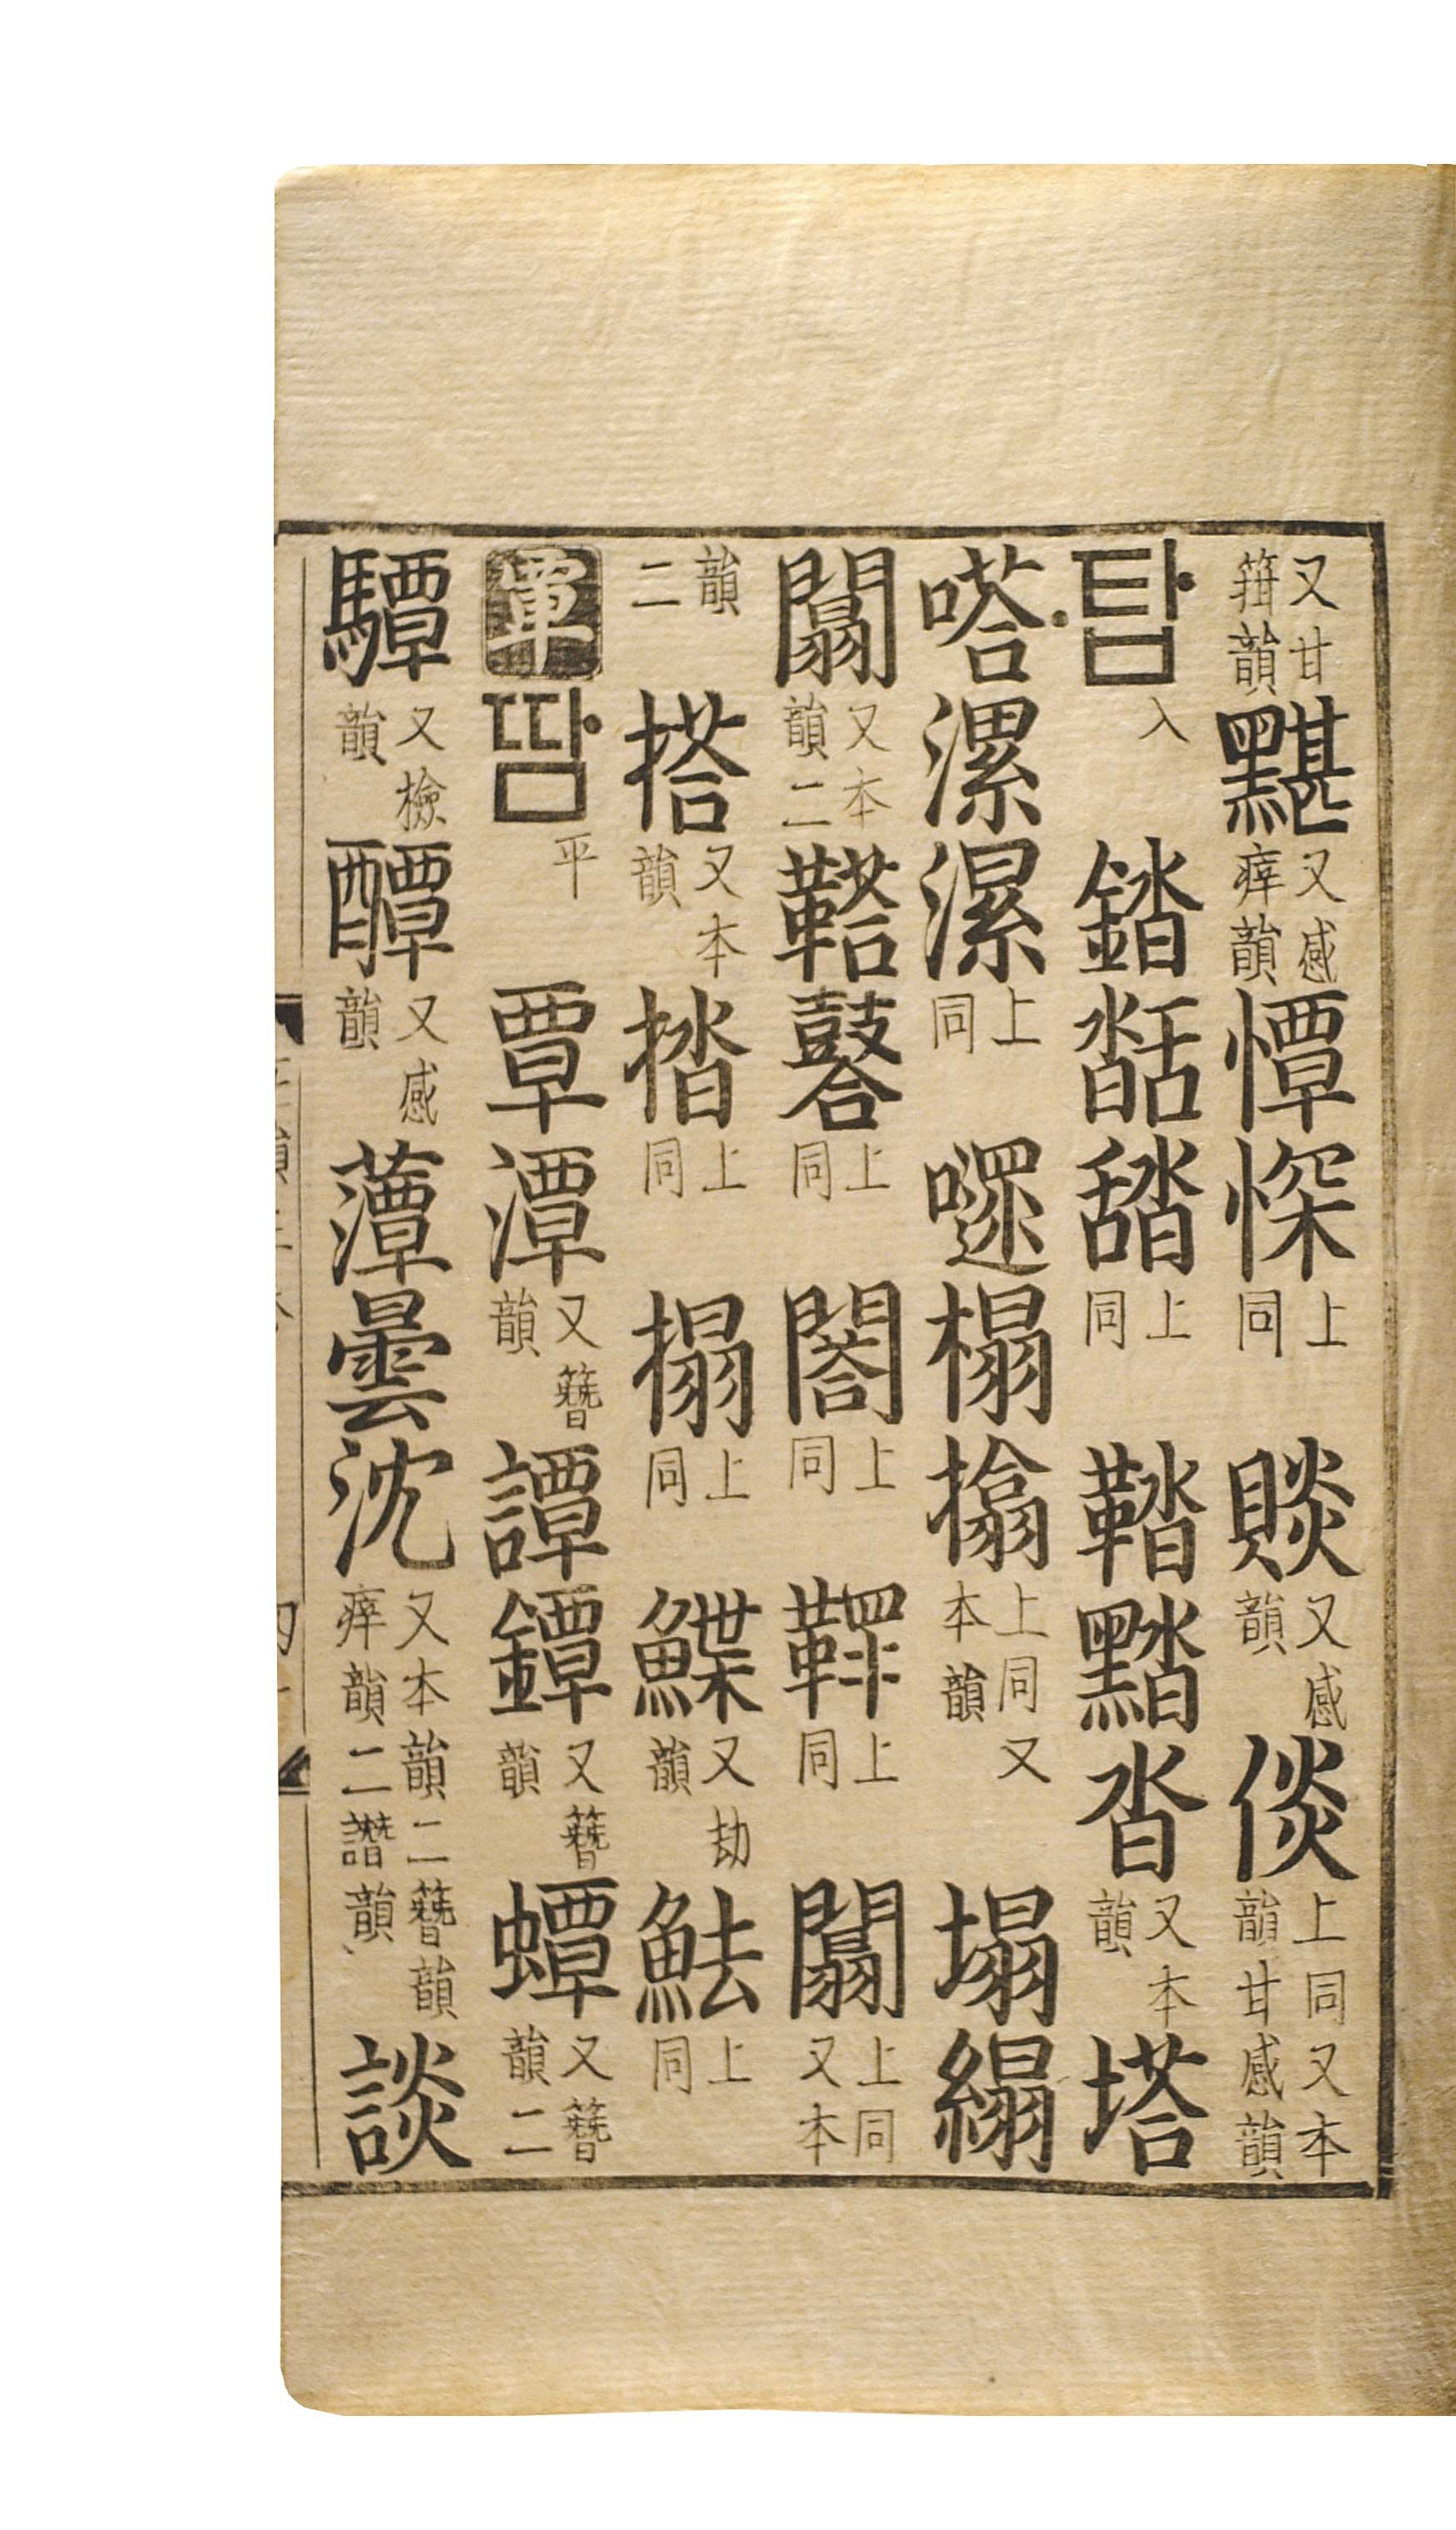 又甘箝韻黮又感瘁韻憛悇上同賧又感韻倓上同又本韻甘感韻
탐入錔㗳䑜上同鞜黷沓又本韻塔
嗒漯㶟上同嚃榻搨上同又本韻塌縎
闒又本韻二鞳鼛上同閤上同鞸上同闟上同又本
韻二搭又本韻搚上同搨上同鰈又劫韻魼上同
覃땀平覃潭又簪韻譚鐔又簪韻蟫又簪韻二
驔又檢韻醰又感韻藫曇沈又本韻二簪韻瘁韻二譖韻談